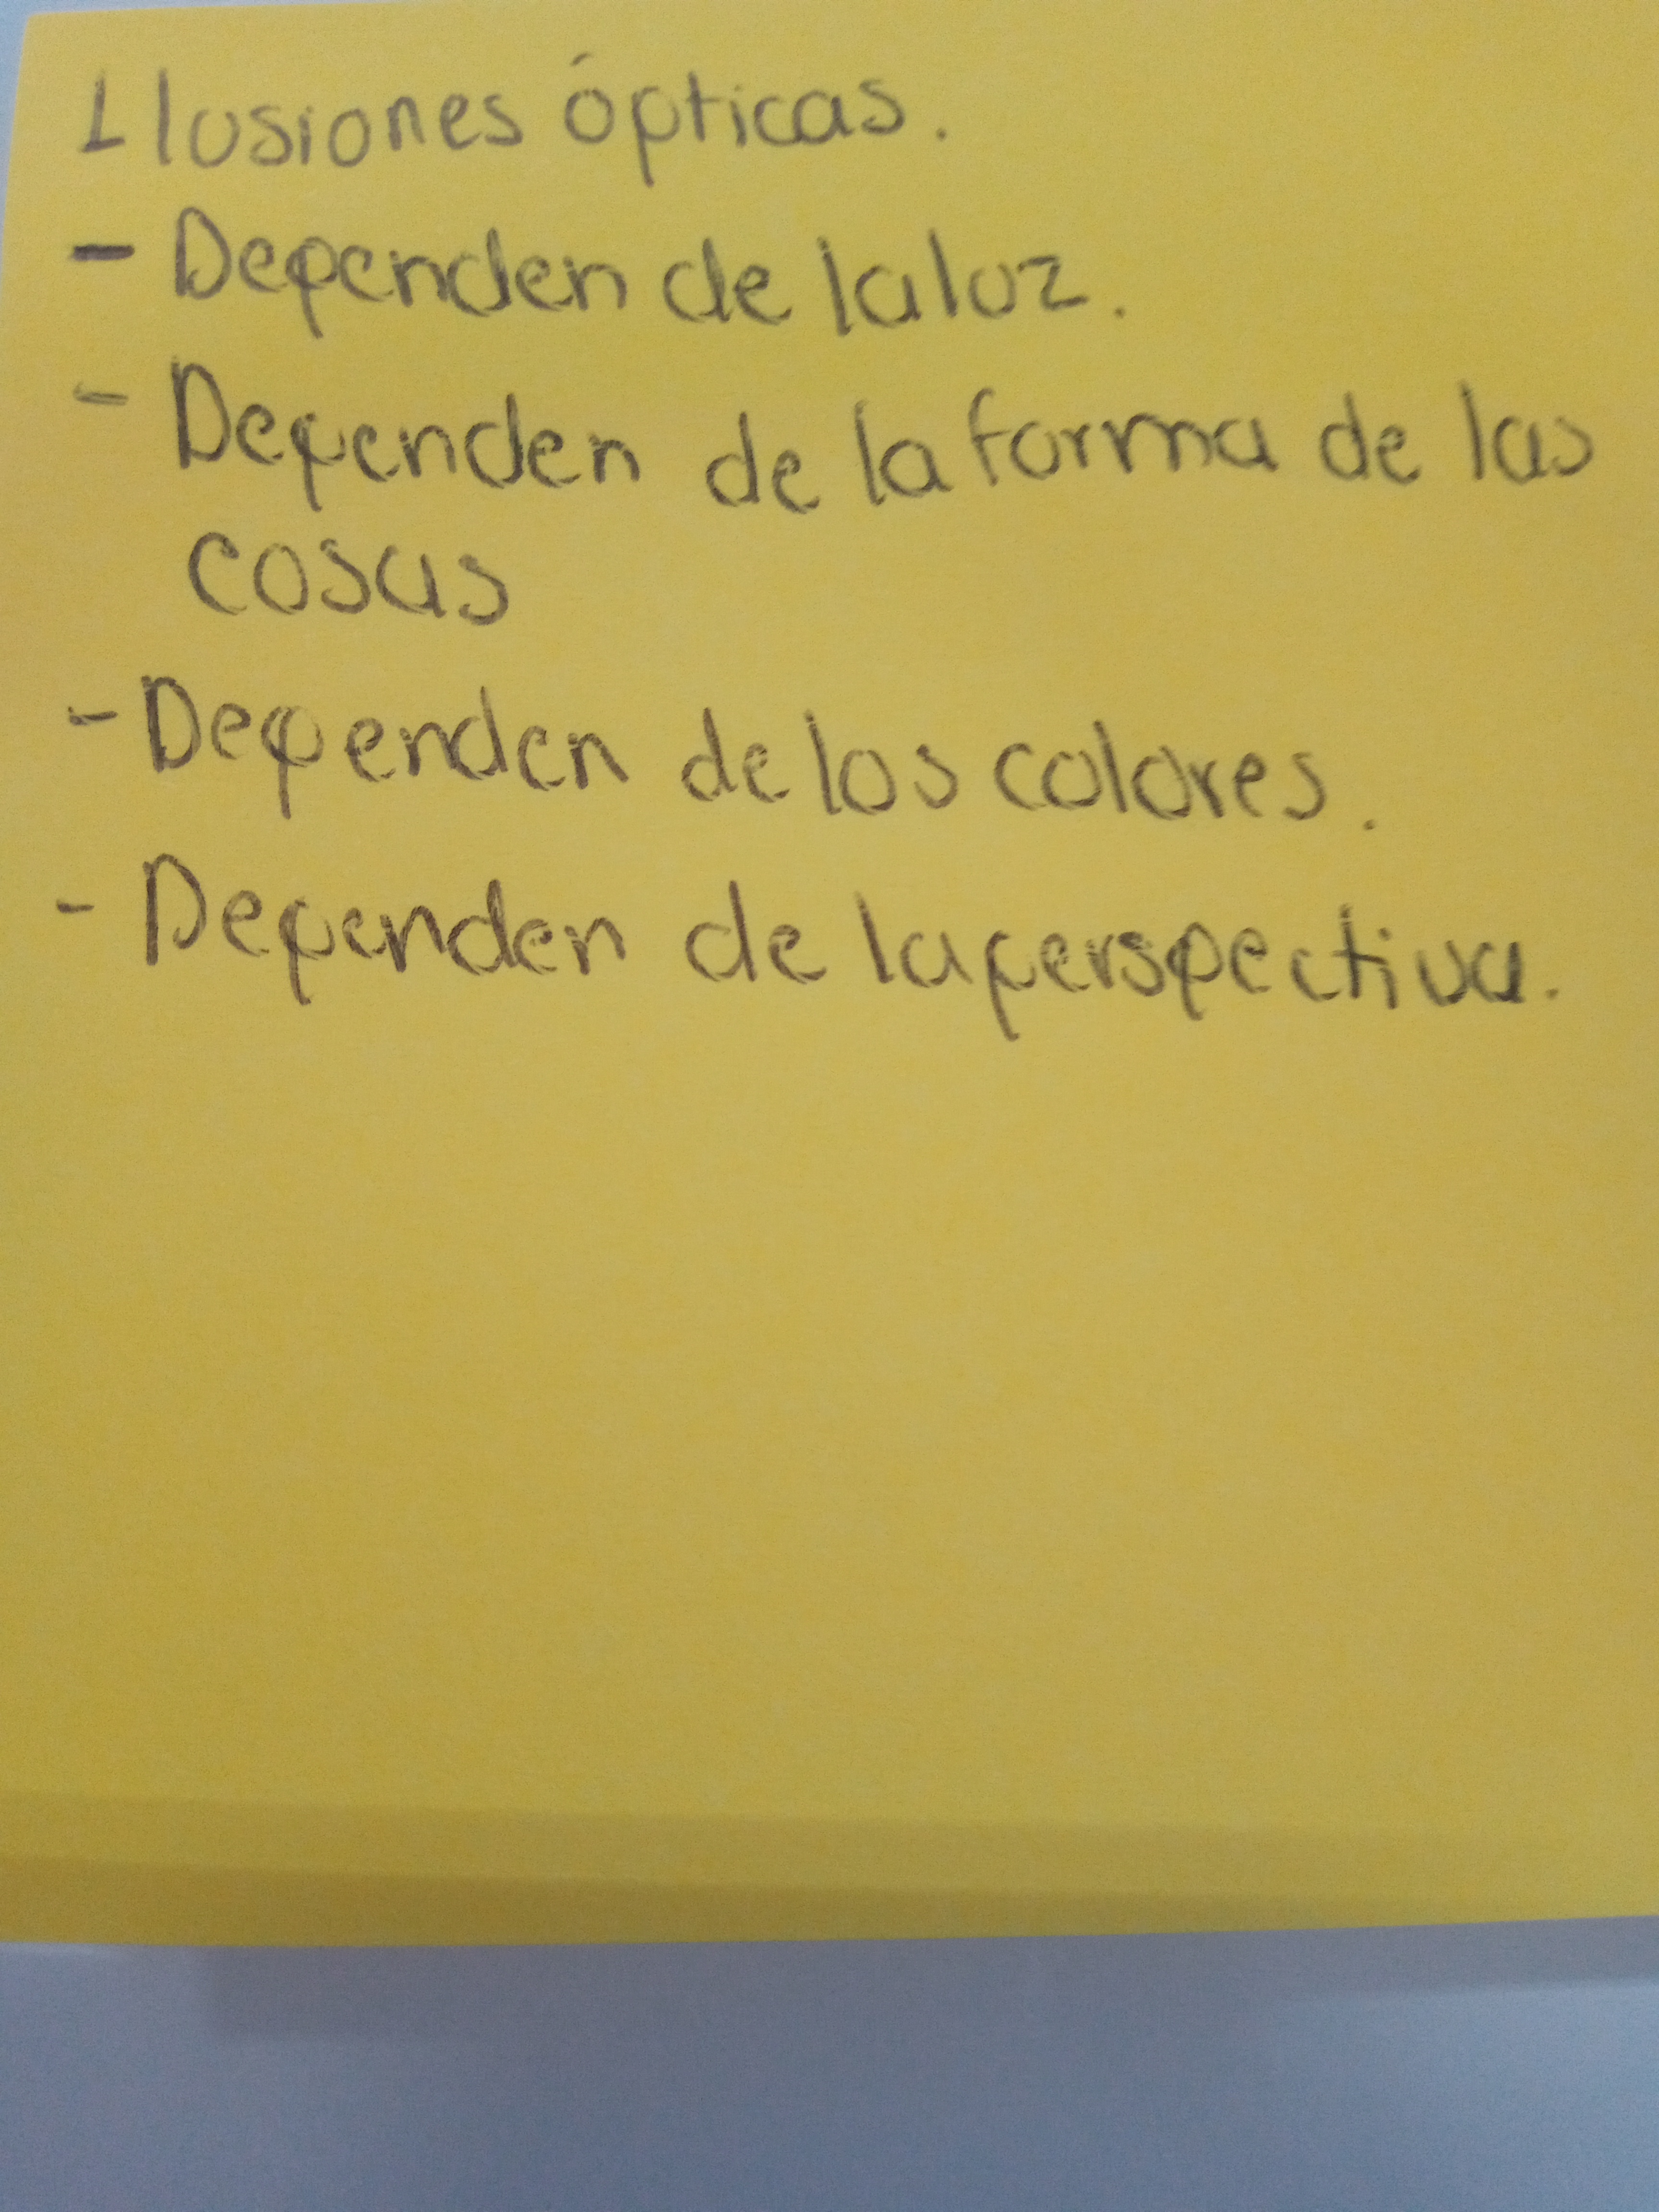 Ilusiones ópticas.
- Dependen de la luz.
- Dependen de la forma de las
cosas
- Dependen de los colores.
- Dependen de la perspectiva.